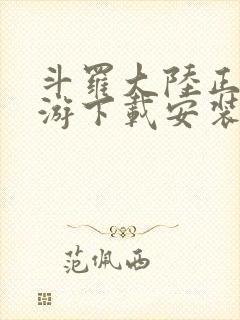 斗羅大陸正
游下載安裝
范佩西